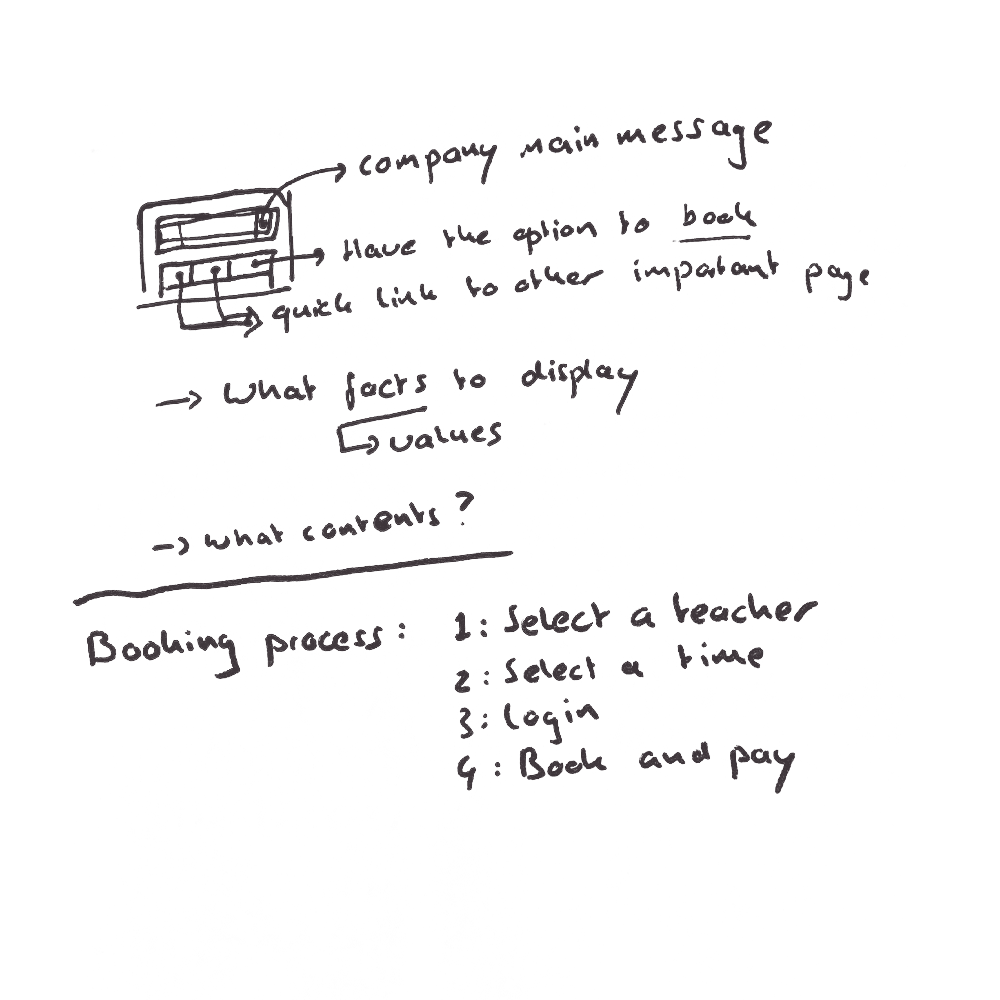 company main message
Have the option to book
quick link to other important page
→ What facts to display
values
→ what contents?
Booking process: 1: Select a teacher
2: Select a time
3: Login
4: Book and pay